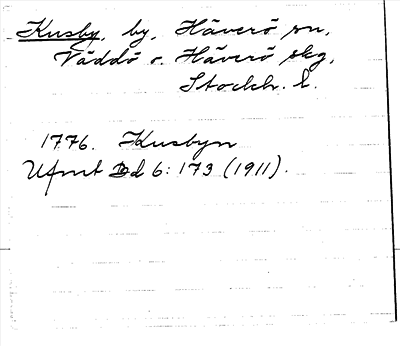 Kusby, by, Häverö sn,
Väddö o. Häverö skg,
Stockh. l.
1776. Kusbyn
Ufmt Dd 6: 173 (1911).